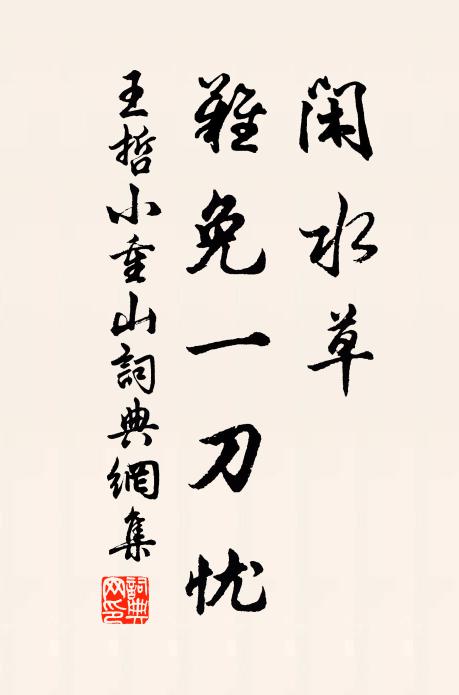 閑水草
難免一刀忧
王哲小重山詞典網集
詞典网印